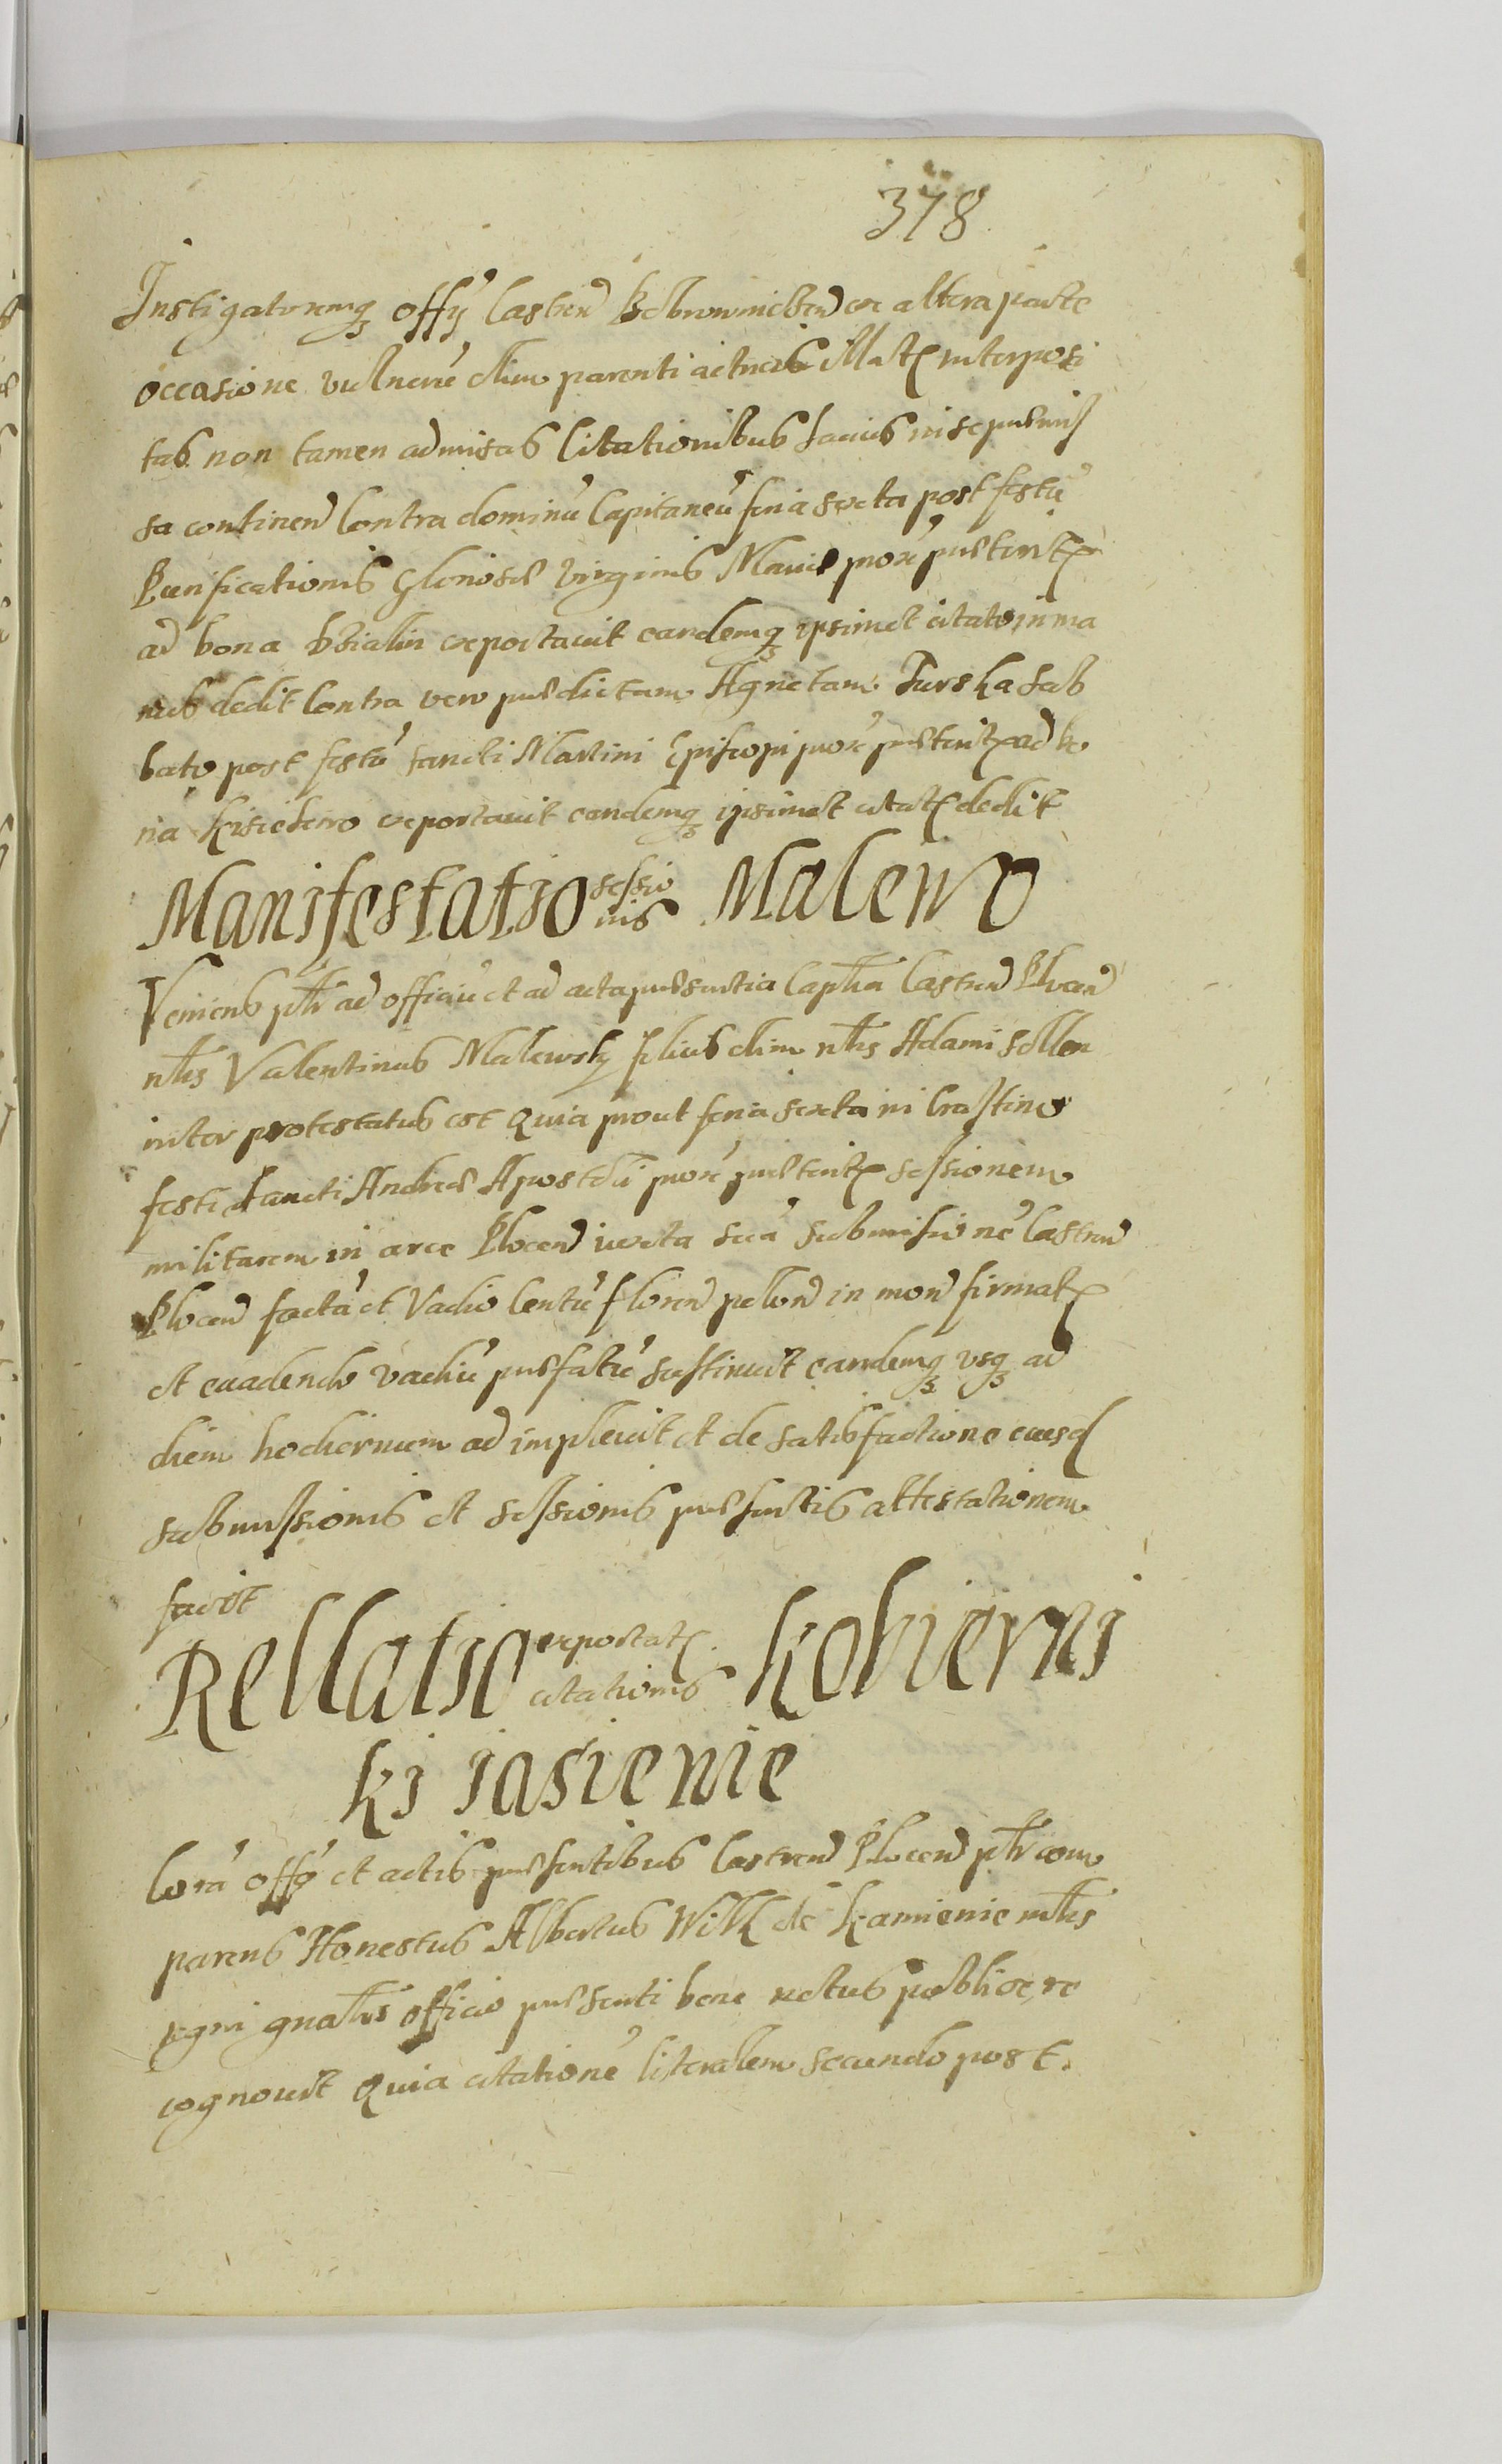 378
Instigatoremq offÿ Castren ex altera parte
occasione vulneru olim parenti actricis illatʒ interposi
tas non tamen admisas Citationibus latius in se præmis
sa continen Contra dominu Capitaneu feria sexta post festu
Purificationis Gloriosæ Virginis Mariæ proxe præteritʒ
ad bona exportavit eandemq ipsimet citato in ma
nus dedit Contra vero prædictam Agnetam Turska Sab
bato post festu Sancti Martini Episcopi proxe præteritʒ ad bo
na exportavit eandemq ipsimet citatʒ dedit
Manifestatio sessio nis Malewo
Veniens pthr ad officiu et ad acta præsentia Capthra Castren Plocen
nthis Valentinus Malewsky filius olim nthis Adami sollen
niter protestatus est Quia prout feria sexta in Crastino
festi Sancti Andreæ Apostoli proxe præteritʒ sessionem
militarem in arce Plocen iuxta sua submisione Castren
Plocen facta et Vadio Centu floren polon in mon firmatʒ
et evadendo vadiu præfatu sustinuit eandemq vsq ad
diem hodiernum adimplevit et de satisfactione eiusd
submissionis et sessionis præsentis attestationem
facit
Rellatio exportatʒ citationis Kobierni
ki Jasienie
Cora offo et actis præsentibus Castren Plocen pthr com
parens Honestus Albertus Wilk de Kamienie mthis
regni gnalis officio præsenti bene notus publice re
cognovit Quia citatione literalem secundo post